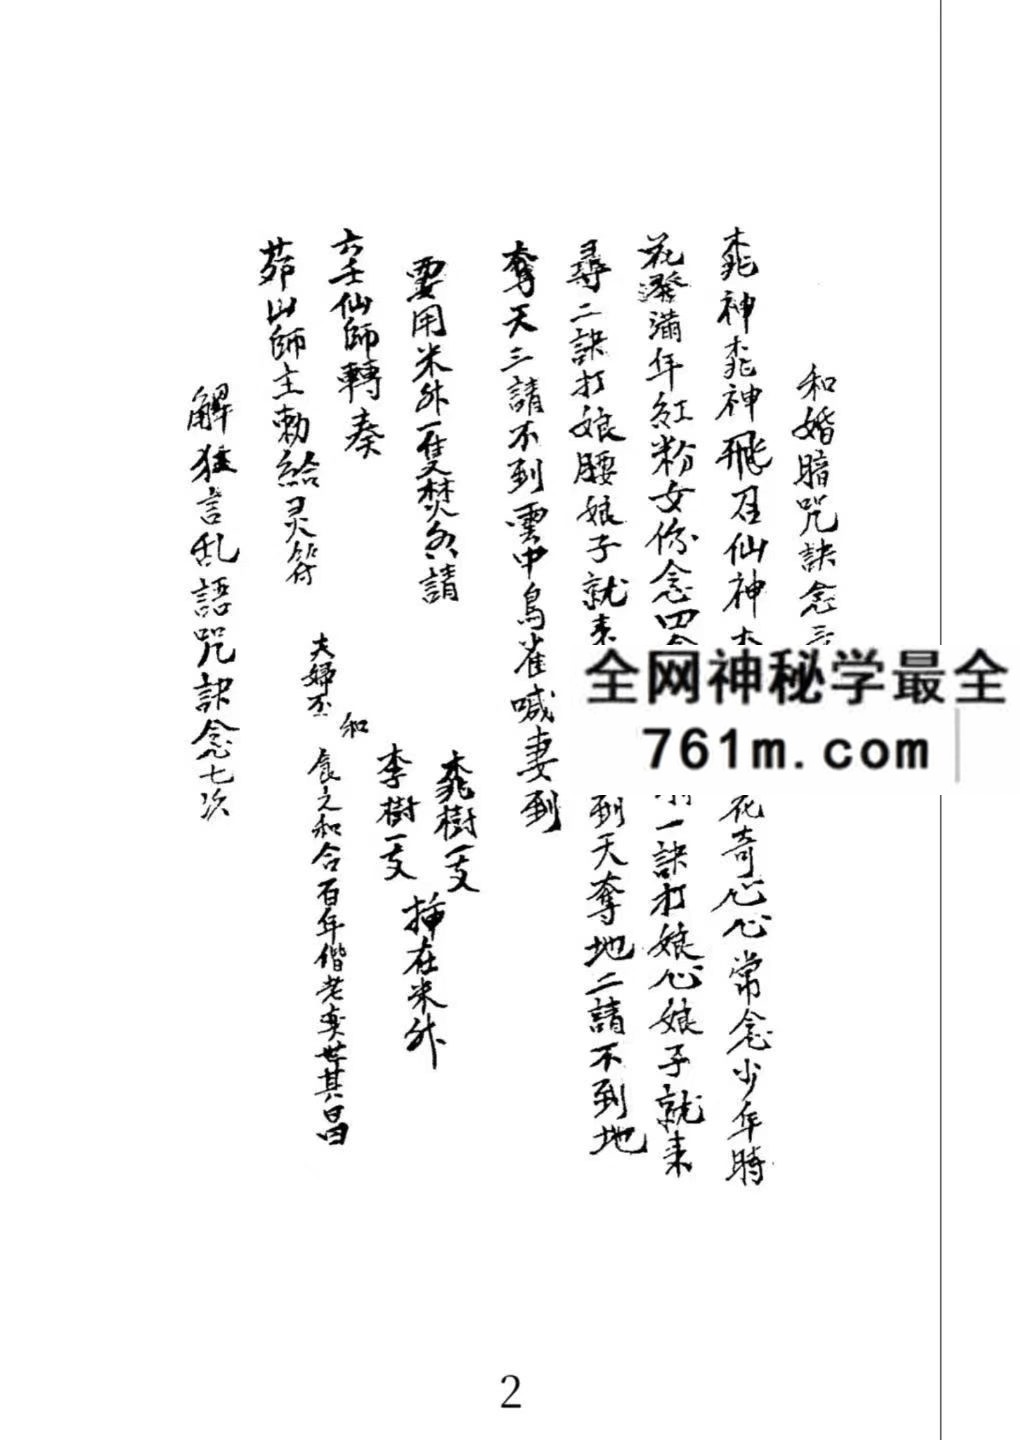 和婚暗咒訣念三
桃神桃神飛召仙神 花奇心心常念少年時
花發滿年紅粉女你念四 一訣打娘心娘子就来
尋二訣打娘腰娘子就来 到天奪地二請不到地
奪天三請不到雲中鳥雀喊妻到
要用米升一隻焚香請
桃樹一支
李樹一支
插在米升
六壬仙師轉奏
茆山師主勅給灵符
夫婦不和
食之和合百年偕老奕世其昌
解狂言乱語咒訣念七次
全网神秘学最全
761m.com
2